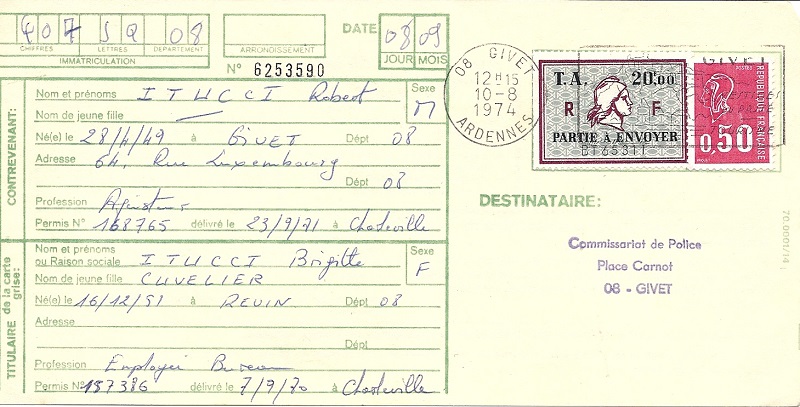 407 SQ 08
CHIFFRES LETTRES DEPARTEMENT
IMMATRICULATION
ARRONDISSEMENT
DATE 08 09
JOUR MOIS
N° 6253590
CONTREVENANT:
Nom et prénoms ITUCCI Robert
Sexe M
Nom de jeune fille —
Né(e) le 28/4/49 à GIVET Dépt 08
Adresse 64, Rue Luxembourg
Dépt 08
Profession
Permis N° 168765 délivré le 23/9/71 à Charleville
TITULAIRE de la carte grise:
Nom et prénoms
ou Raison sociale ITUCCI Brigitte
Sexe F
Nom de jeune fille CUVELIER
Né(e) le 16/12/51 à REVIN Dépt 08
Adresse
Dépt
Profession Employée Bureau
Permis N° 157386 délivré le 7/9/70 à Charleville
08 GIVET
12 H 15
10-8
1974
ARDENNES
T.A. 20F00
R F
PARTIE A ENVOYER
GIVET
POSTES
RÉPUBLIQUE FRANÇAISE
0,50
DESTINATAIRE:
Commissariat de Police
Place Carnot
08 - GIVET
70.0001/14